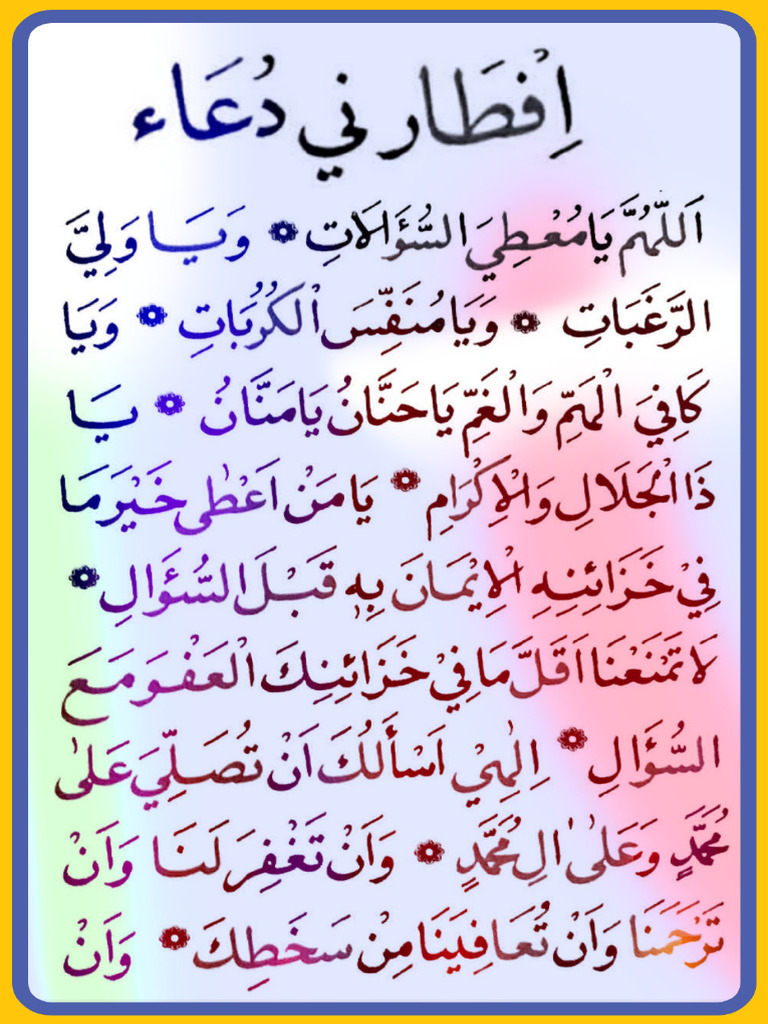 اِفْطَار ني دُعَاء
اَللّٰهُمَّ يَا مُعْطِيَ السُّؤَالَاتِ ۞ وَيَا وَلِيَّ
الرَّغَبَاتِ ۞ وَيَا مُنَفِّسَ الْكُرُبَاتِ ۞ وَيَا
كَافِيَ الْهَمِّ وَالْغَمِّ يَا حَنَّانُ يَا مَنَّانُ ۞ يَا
ذَا الْجَلَالِ وَالْاِكْرَامِ ۞ يَا مَنْ اَعْطٰى خَيْرَ مَا
فِيْ خَزَائِنِهِ الْاِيْمَانَ بِهٖ قَبْلَ السُّؤَالِ ۞
لَا تَمْنَعْنَا اَقَلَّ مَا فِيْ خَزَائِنِكَ الْعَفْوَ مَعَ
السُّؤَالِ ۞ اِلٰهِيْ اَسْأَلُكَ اَنْ تُصَلِّيَ عَلىٰ
مُحَمَّدٍ وَعَلىٰ اٰلِ مُحَمَّدٍ ۞ وَاَنْ تَغْفِرَ لَنَا وَاَنْ
تَرْحَمَنَا وَاَنْ تُعَافِيَنَا مِنْ سَخَطِكَ ۞ وَاَنْ